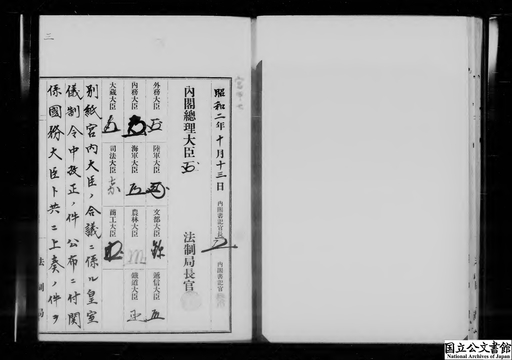 三
昭和二年十月十三日
内閣書記官長
内閣書記官
内閣總理大臣
法制局長官
外務大臣
陸軍大臣
文部大臣
遞信大臣
内務大臣
海軍大臣
農林大臣
鐵道大臣
大藏大臣
司法大臣
商工大臣
別紙宮内大臣ノ合議ニ係ル皇室
儀制令中改正ノ件公布ニ付関
係國務大臣ト共ニ上奏ノ件ヲ
法制局
国立公文書館
National Archives of Japan